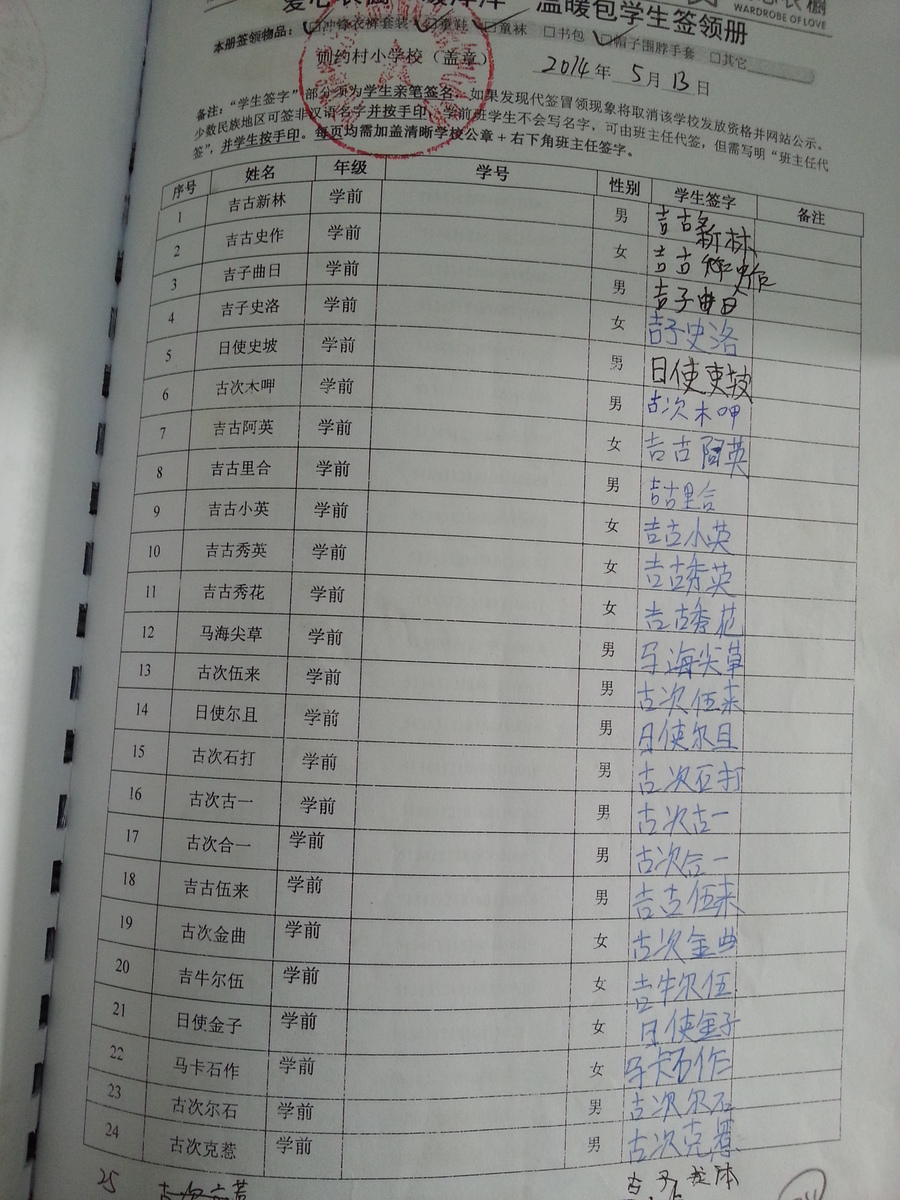 温暖包学生签领册
WARDROBE OF LOVE
本册签领物品： □冲锋衣裤套装 □童鞋 □童袜 □书包 □帽子围脖手套 □其它
则约村小学校（盖章） 2014年 5月 13日
备注：“学生签字”部分须为学生亲笔签名，如果发现代签冒领现象将取消该学校发放资格并网站公示。
少数民族地区可签非汉语名字并按手印，学前班学生不会写名字，可由班主任代签，但需写明“班主任代
签”，并学生按手印。每页均需加盖清晰学校公章+右下角班主任签字。
序号 姓名 年级 学号 性别 学生签字 备注
1 吉古新林 学前 男 吉古 新林
2 吉古史作 学前 女 吉古 史作
3 吉子曲日 学前 男 吉子曲日
4 吉子史洛 学前 女 吉子史洛
5 日使史坡 学前 男 日使吏坡
6 古次木呷 学前 男 古次木呷
7 吉古阿英 学前 女 吉古阿英
8 吉古里合 学前 男 吉古里合
9 吉古小英 学前 女 吉古小英
10 吉古秀英 学前 女 吉古秀英
11 吉古秀花 学前 女 吉古秀花
12 马海尖草 学前 男 马海尖草
13 古次伍来 学前 男 古次伍来
14 日使尔且 学前 男 日使尔且
15 古次石打 学前 男 古次石打
16 古次古一 学前 男 古次古一
17 古次合一 学前 男 古次合一
18 吉古伍来 学前 男 吉古伍来
19 古次金曲 学前 女 古次金曲
20 吉牛尔伍 学前 女 吉牛尔伍
21 日使金子 学前 女 日使金子
22 马卡石作 学前 女 马卡石作
23 古次尔石 学前 男 古次尔石
24 古次克惹 学前 男 古次克惹
25